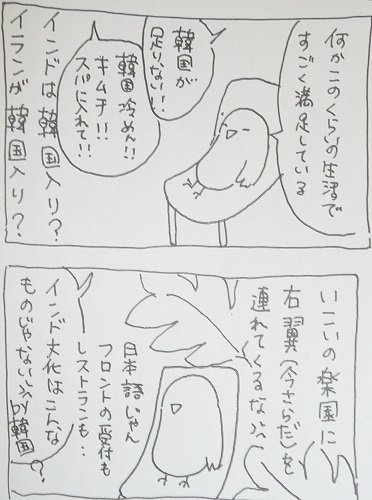 何かこのくらいの生活で
すごく満足している
韓国が
足りない!!
韓国冷めん!!
キムチ!!
スパに入れて!!
インドは韓国入り?
イランが韓国入り?
いこいの楽園に
右翼(今さらだ)を
連れてくるな
日本語じゃん
フロントの受付も
レストランも・・
インド文化はこんな
ものじゃない 韓国?